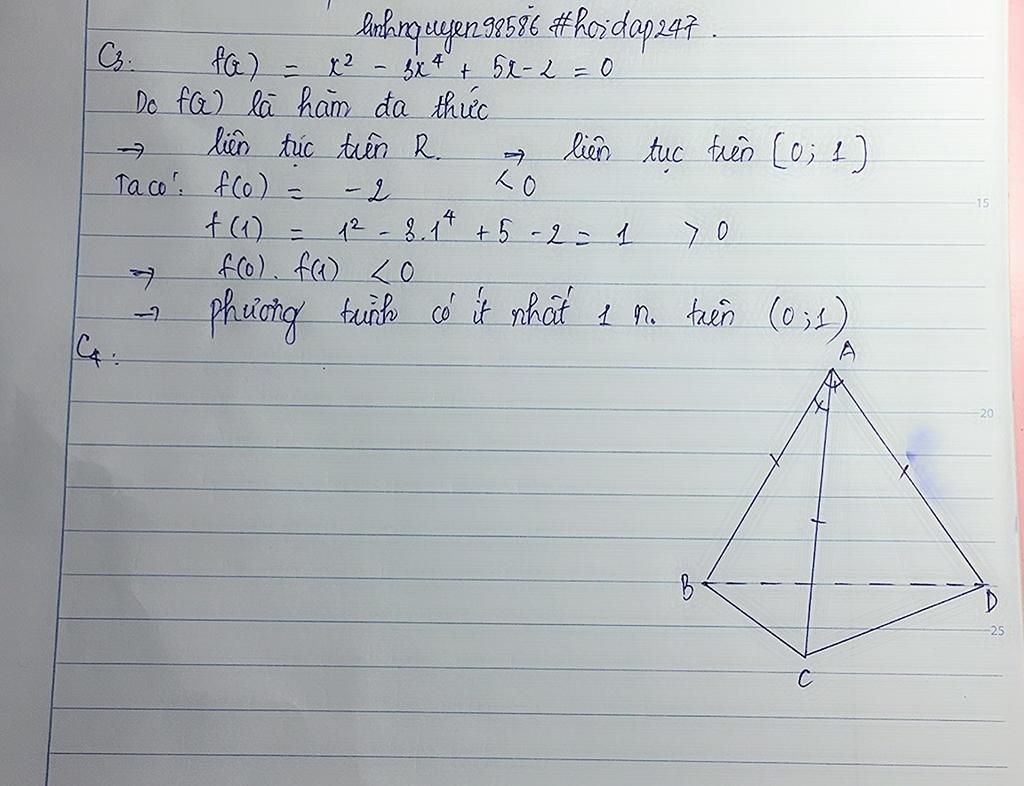 linhnguyen98586 #hoidap247.
C3: f(x) = x² - 3x⁴ + 5x - 2 = 0
Do f(x) là hàm đa thức
→ liên tục trên R. → liên tục trên [0; 1]
Ta có: f(0) = -2 < 0
f(1) = 1² - 3.1⁴ + 5 - 2 = 1 > 0
→ f(0). f(1) < 0
→ phương trình có ít nhất 1 n. trên (0;1)
C4:
A
B
D
C
15
20
25